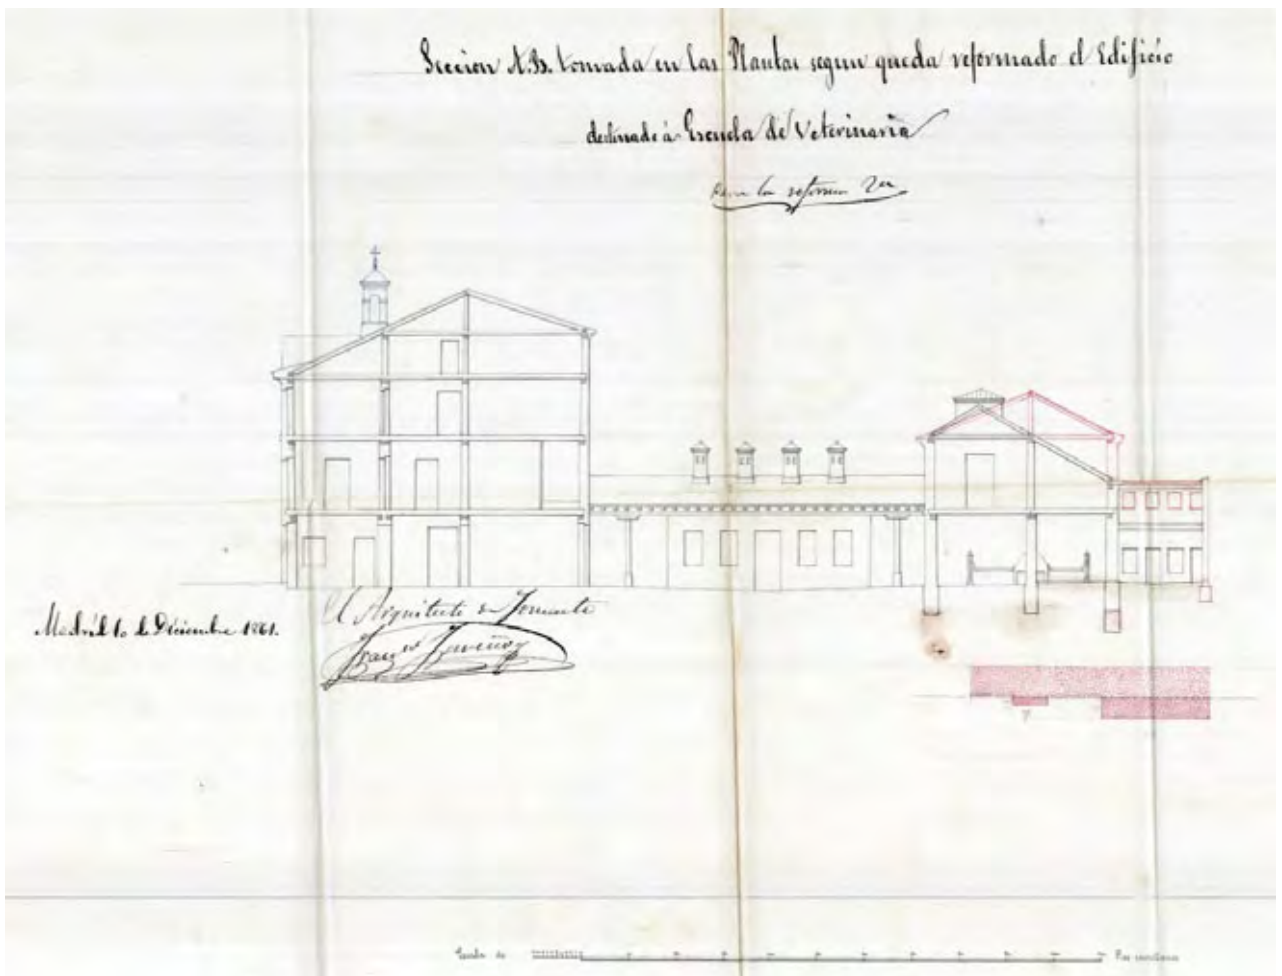 Seccion A.B. tomada en las Plantas segun queda reformado el Edificio
destinado á Escuela de Veterinaria
Madrid 10 de Diciembre 1861.
El Arquitecto de Fomento
Escala de